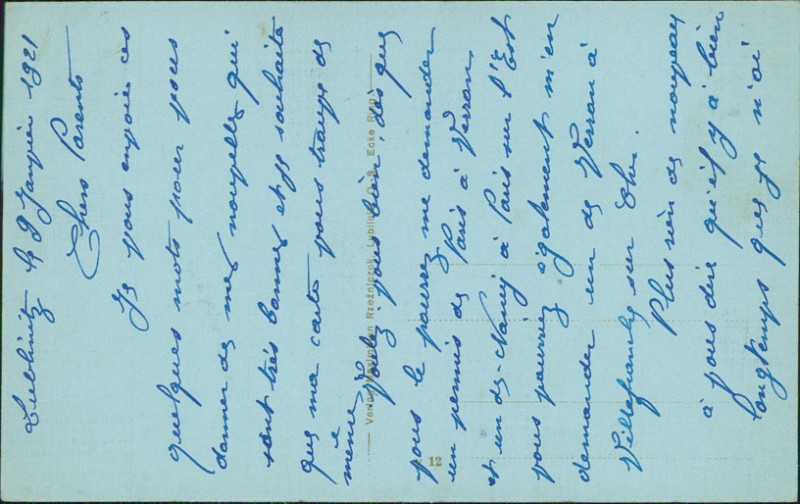 Lublinitz le 9 Janvier 1921
Chers Parents
Je vous envoie ces
quelques mots pour vous
donner de mes nouvelles qui
sont très bonnes et je souhaite
que ma carte vous trouve de
meme
Voulez-vous bien, dès que
vous le pourrez me demander
un permis de Paris à Verran
et un de Nancy à Paris sur l'Est
vous pourrez également m'en
demander un de Verran à
Villefranche sur Cher.
Plus rien de nouveau
à vous dire qu'il y a bien
longtemps que je n'ai
Verlag Maximilian Rzeźniczek, Lublinitz O.-S., Ecke Ring
12